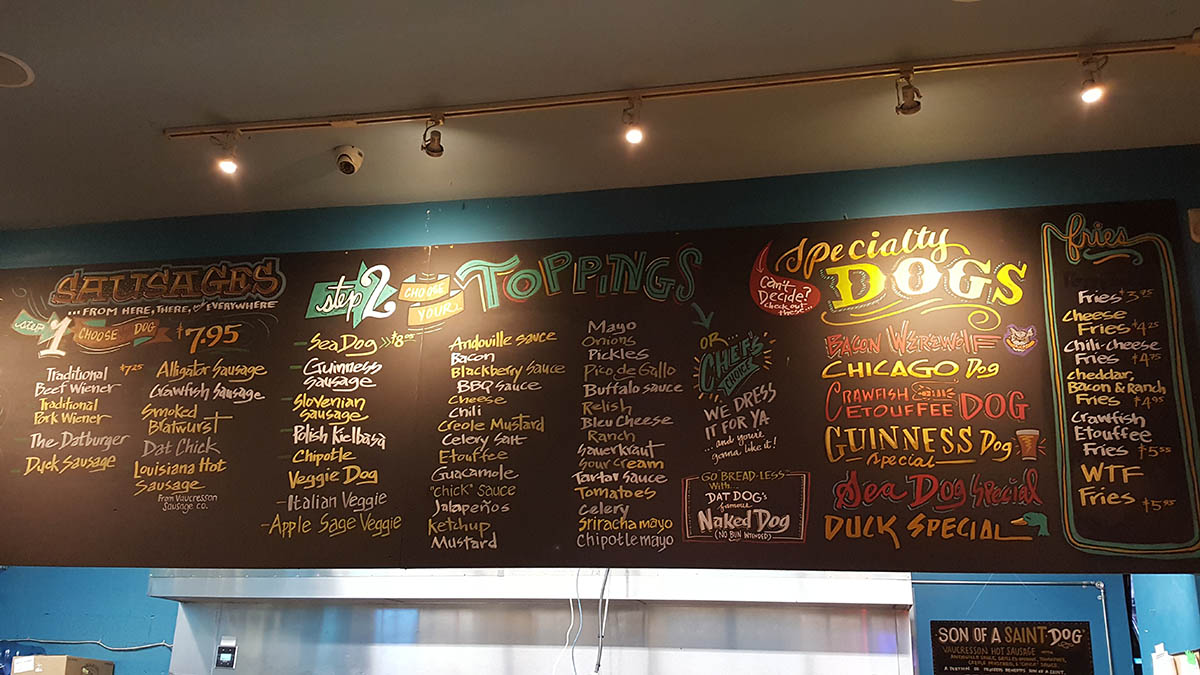 SAUSAGES
...FROM HERE, THERE, and EVERYWHERE
step 1 CHOOSE DOG $7.95
Traditional $7.25
Beef Wiener
Traditional
Pork Wiener
The Datburger
Duck Sausage
Alligator Sausage
Crawfish Sausage
Smoked
Bratwurst
Dat Chick
Louisiana Hot
Sausage
From Vaucresson
Sausage Co.
step 2 CHOOSE
YOUR
TOPPINGS
Sea Dog
Guinness
Sausage
Slovenian
Sausage
Polish Kielbasa
Chipotle
Veggie Dog
Italian Veggie
Apple Sage Veggie
Andouille sauce
Bacon
Blackberry Sauce
BBQ Sauce
Cheese
Chili
Creole Mustard
Celery Salt
Etouffee
Guacamole
"chick" Sauce
Jalapeños
Ketchup
Mustard
Mayo
Onions
Pickles
Pico de Gallo
Buffalo sauce
Relish
Bleu Cheese
Ranch
Sauerkraut
Sour Cream
Tartar Sauce
Tomatoes
Celery
Sriracha mayo
Chipotle mayo
OR
CHEF'S
CHOICE
WE DRESS
IT FOR YA
... and you're
gonna like it!
GO BREAD-LESS
With...
DAT DOG'S
famous
Naked Dog
(NO BUN INTENDED)
Can't
Decide?
check out
these...
Specialty
DOGS
BACON WEREWOLF
CHICAGO Dog
CRAWFISH
ETOUFFEE DOG
GUINNESS Dog
Special
Sea Dog Special
DUCK SPECIAL
fries
Fries $3.75
Cheese
Fries $4.25
Chili-cheese
Fries $4.75
cheddar,
Bacon & Ranch
Fries $4.95
Crawfish
Etouffee
Fries $5.55
WTF
Fries $5.95
SON OF A SAINT DOG
VAUCRESSON HOT SAUSAGE